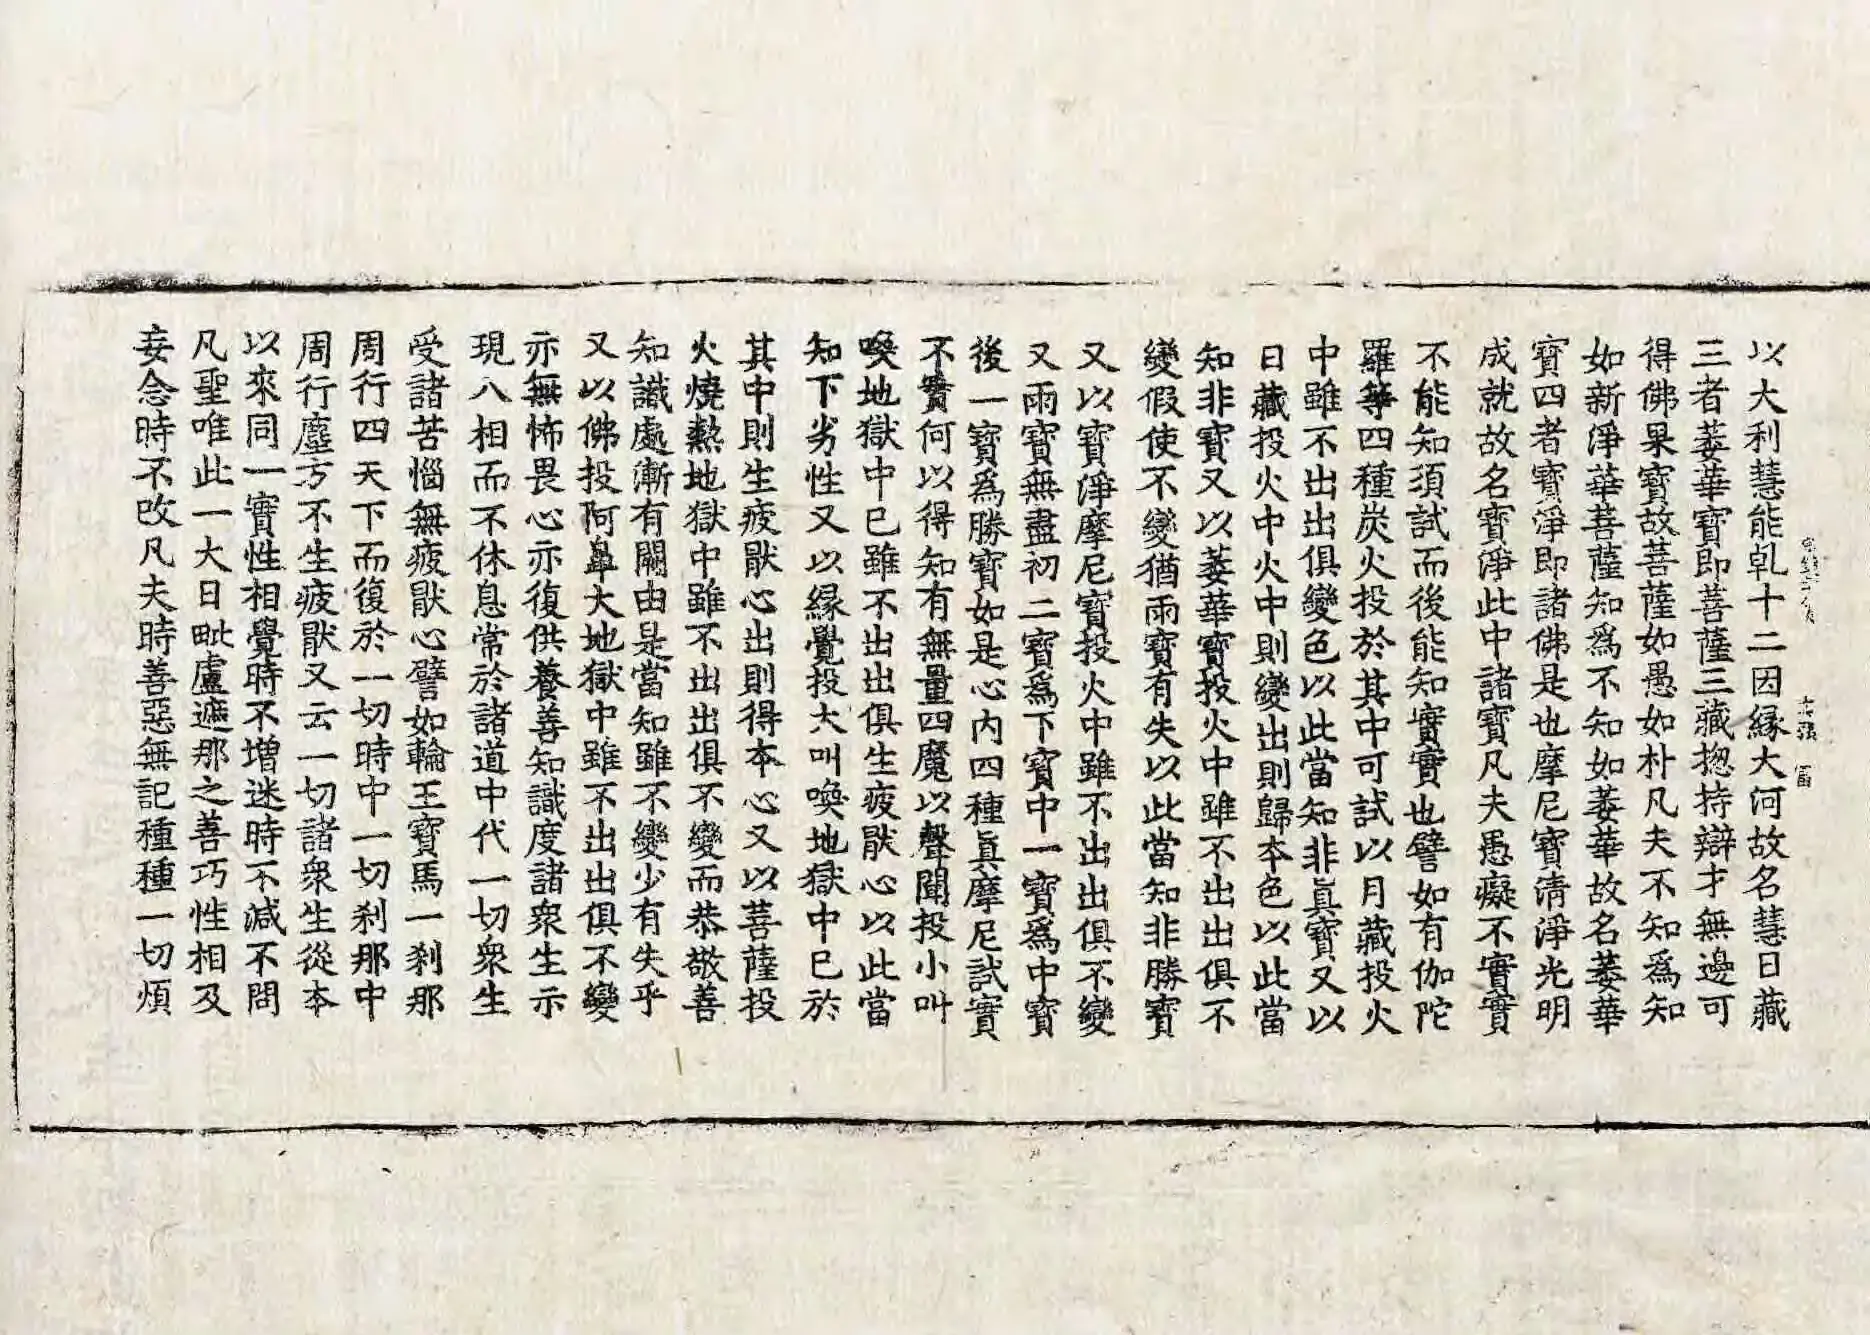 以大利慧能乹十二因縁大河故名慧日藏
三者萎華寶即菩薩三藏揔持辯才無邊可
得佛果寶故菩薩如愚如朴凡夫不知為知
如新淨華菩薩知為不知如萎華故名萎華
寶四者寶淨即諸佛是也摩尼寶清淨光明
成就故名寶淨此中諸寶凡夫愚癡不實實
不能知須試而後能知實實也譬如有伽陀
羅等四種炭火投於其中可試以月藏投火
中雖不出出俱變色以此當知非真寶又以
日藏投火中火中則變出則歸本色以此當
知非寶又以萎華寶投火中雖不出出俱不
變假使不變猶雨寶有失以此當知非勝寶
又以寶淨摩尼寶投火中雖不出出俱不變
又雨寶無盡初二寶為下寶中一寶為中寶
後一寶為勝寶如是心内四種真摩尼試實
不實何以得知有無量四魔以聲聞投小叫
喚地獄中已雖不出出俱生疲猒心以此當
知下劣性又以縁覺投大叫喚地獄中已於
其中則生疲猒心出則得本心又以菩薩投
火燒熱地獄中雖不出出俱不變而恭敬善
知識處漸有闕由是當知雖不變少有失乎
又以佛投阿鼻大地獄中雖不出出俱不變
亦無怖畏心亦復供養善知識度諸衆生示
現八相而不休息常於諸道中代一切衆生
受諸苦惱無疲猒心譬如輪王寶馬一刹那
周行四天下而復於一切時中一切刹那中
周行塵方不生疲猒又云一切諸衆生從本
以來同一實性相覺時不增迷時不減不問
凡聖唯此一大日毗盧遮那之善巧性相及
妄念時不改凡夫時善惡無記種種一切煩